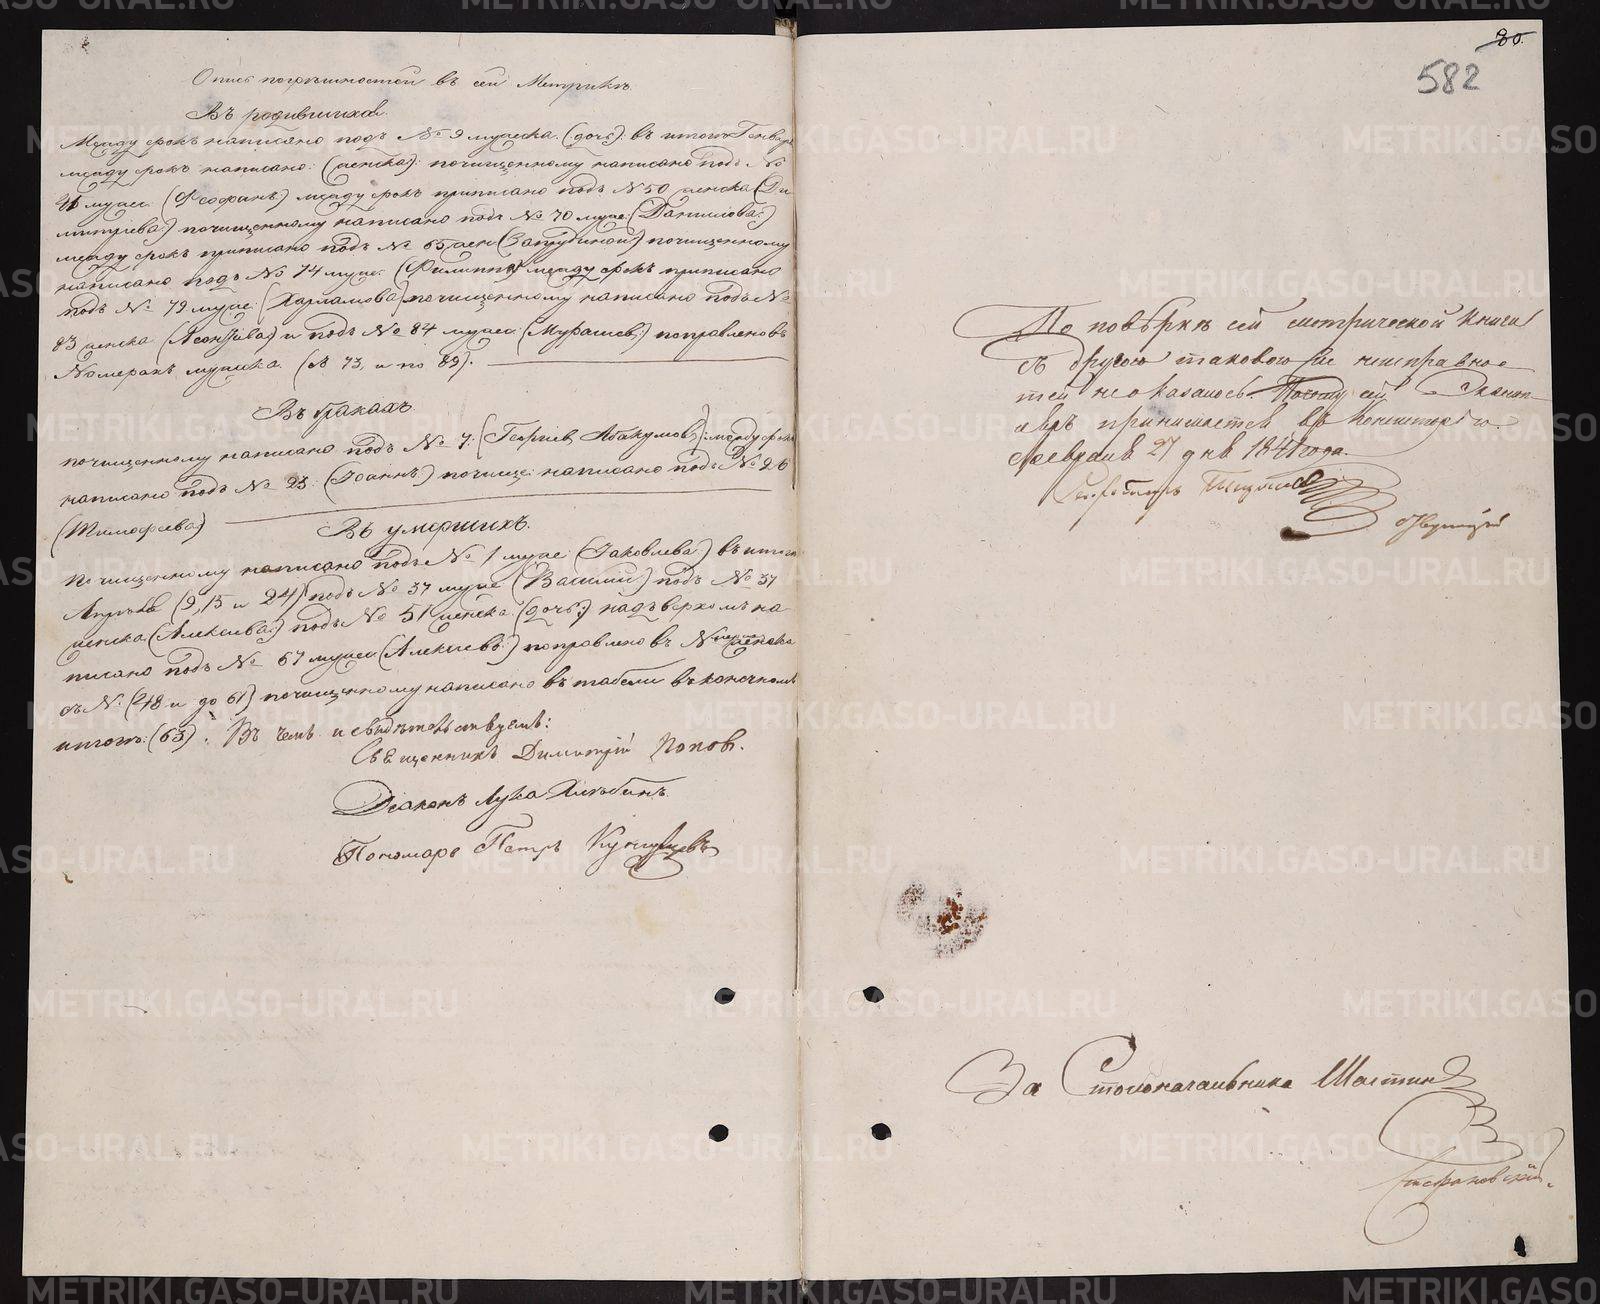 Опись погрѣшностей въ сей Метрикѣ.
Въ родившихся
Между срокъ написано подъ № 9 мужеска (дочь): въ итогѣ Генваря
между срокъ написано: (женска): почищенному написано подъ №
муже. (Феофанъ) между срокъ приписано подъ № 50 женска (Ди
митріева:) почищенному написано подъ № 70 муже (Данилова:)
между срокъ приписано подъ № 65 жен почищенному
написано подъ № 74 муже. (Филиппъ) между срокъ приписано
подъ № 79 муже: (Харламова) почищенному написано подъ №
83 женска (Леонтьева) и подъ № 84 мужеска (Мурашев;) поправлено въ
Номерахъ мужска (73, и по 89).
Въ бракахъ
почищенному написано подъ № 7: (Георгіев Абакумов;): между срокъ
написано подъ № 23: (Іоаннъ) почище: написано подъ № 26
(Тимофеева)
Въ умершихъ.
Почищенному написано подъ № 1 муже: (Іаковлева) въ итогѣ
Апрѣля (9, 15 и 24) подъ № 37 муже (Василій) подъ № 37
женска (Алексѣева:) подъ № 51 женска (дочь;) надъ верхомъ на
писано подъ № 67 мужеск (Алексѣевъ:) поправлено въ женска
съ №: (48 и до 61) почищенному написано въ табели въ конечномъ
итогѣ: (63). Въ чемъ и свидѣтельствуемъ:
Священникъ Димитрій Попов.
Діаконъ Лука Хлѣбинъ.
Пономарь Петръ
80.
582
По повѣркѣ сей метрической книги
съ другою таковою же неисправно
стей не оказалось. Почему сей Экземп
ляръ принимается въ Консисторію
Февраля 27 дня 1841 года.
Секретарь
За Столоначальника Шастинъ
METRIKI.GASO-URAL.RU